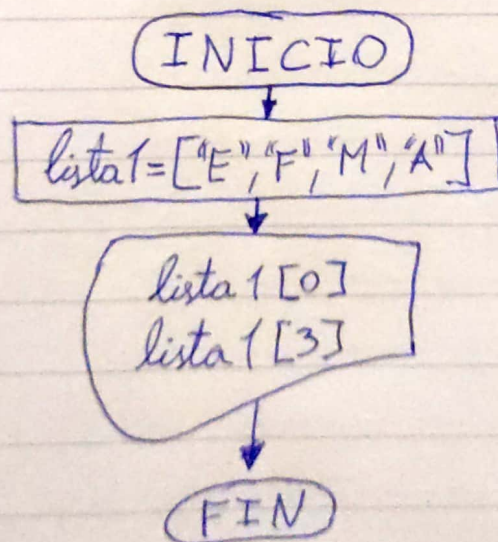 INICIO
lista1=["E","F","M","A"]
lista1[0]
lista1[3]
FIN